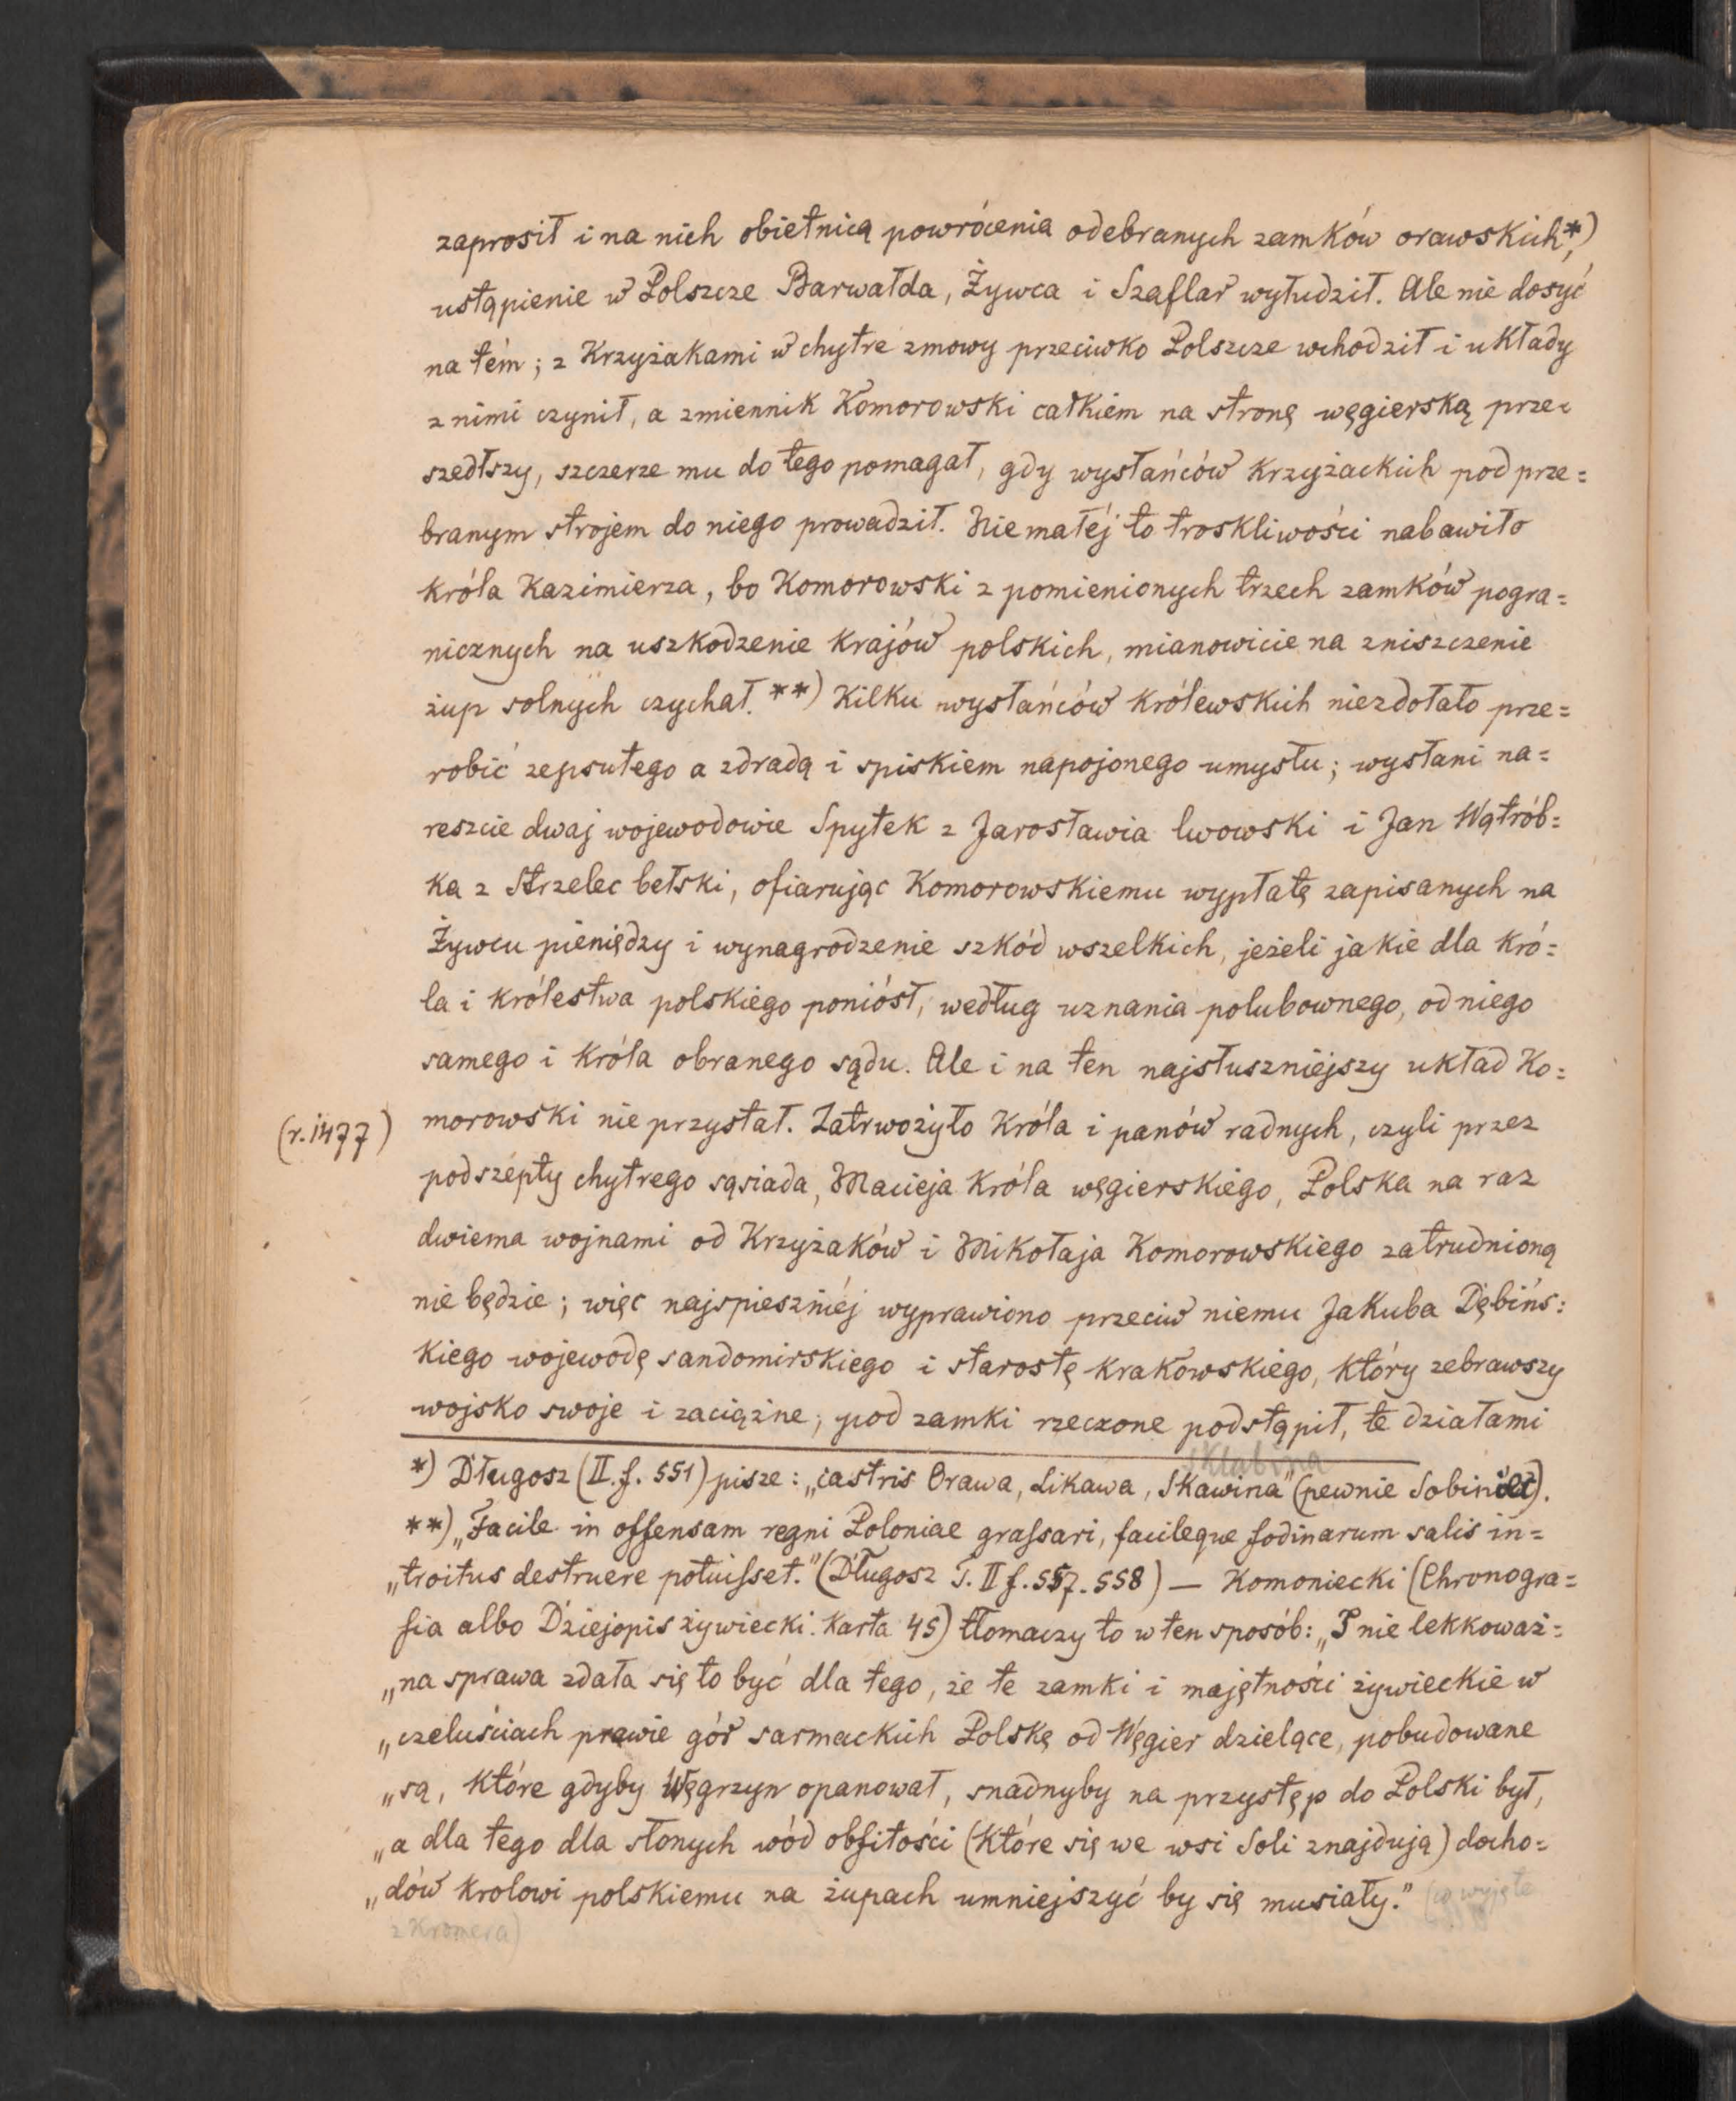 zaprosił i na nich obietnicą powrócenia odebranych zamków orawskich,*)
ustąpienie w Polszcze Barwałda, Żywca i Szaflar wyłudził. Ale nie dosyć
na tém; z Krzyżakami w chytre zmowy przeciwko Polszcze wchodził i układy
z nimi czynił, a zmiennik Komorowski całkiem na stronę węgierską prze=
szedłszy, szczerze mu do tego pomagał, gdy wysłańców Krzyżackich pod prze=
branym strojem do niego prowadził. Nie małéj to troskliwości nabawiło
króla Kazimierza, bo Komorowski z pomienionych trzech zamków pogra=
nicznych na uszkodzenie krajów polskich, mianowicie na zniszczenie
żup solnych czychał.**) Kilku wysłańców królewskich niezdołało prze=
robić zepsutego a zdradą i spiskiem napojonego umysłu; wysłani na=
reszcie dwaj wojewodowie Spytek z Jarosławia lwowski i Jan Wątrób=
ka z Strzelec bełski, ofiarując Komorowskiemu wypłatę zapisanych na
Żywcu pieniędzy i wynagrodzenie szkód wszelkich, jeżeli jakie dla kró=
la i królestwa polskiego poniósł, według uznania polubownego, od niego
samego i króla obranego sądu. Ale i na ten najsłuszniejszy układ Ko=
(r. 1477) morowski nie przystał. Zatrwożyło króla i panów radnych, czyli przez
podszepty chytrego sąsiada, Macieja króla węgierskiego, Polska na raz
dwiema wojnami od Krzyżaków i Mikołaja Komorowskiego zatrudnioną
nie będzie; więc najspieszniéj wyprawiono przeciw niemu Jakuba Dębińs=
kiego wojewodę sandomirskiego i starostę krakowskiego, który zebrawszy
wojsko swoje i zaciężne, pod zamki rzeczone podstąpił, te działami
Sklabina
*) Długosz (II. f. 551) pisze: „castris Orawa, Likawa, Skawina" (pewnie Sobiniec).
**) „Facile in offensam regni Poloniae grassari, facileque fodinarum salis in=
„troitus destruere potuisset." (Długosz T. II f. 557. 558) — Komoniecki (Chronogra=
fia albo Dziejopis żywiecki. Karta 45) tłomaczy to w ten sposób: „I nie lekkoważ=
„na sprawa zdała się to być dla tego, że te zamki i majętności żywieckie w
„czeluściach prawie gór sarmackich Polskę od Węgier dzielące, pobudowane
„są, które gdyby Węgrzyn opanował, snadnyby na przystęp do Polski był,
„a dla tego dla słonych wód obfitości (które się we wsi Soli znajdują) docho=
„dów krolowi polskiemu na żupach umniejszyć by się musiały." (co wyjęte
z Kromera)